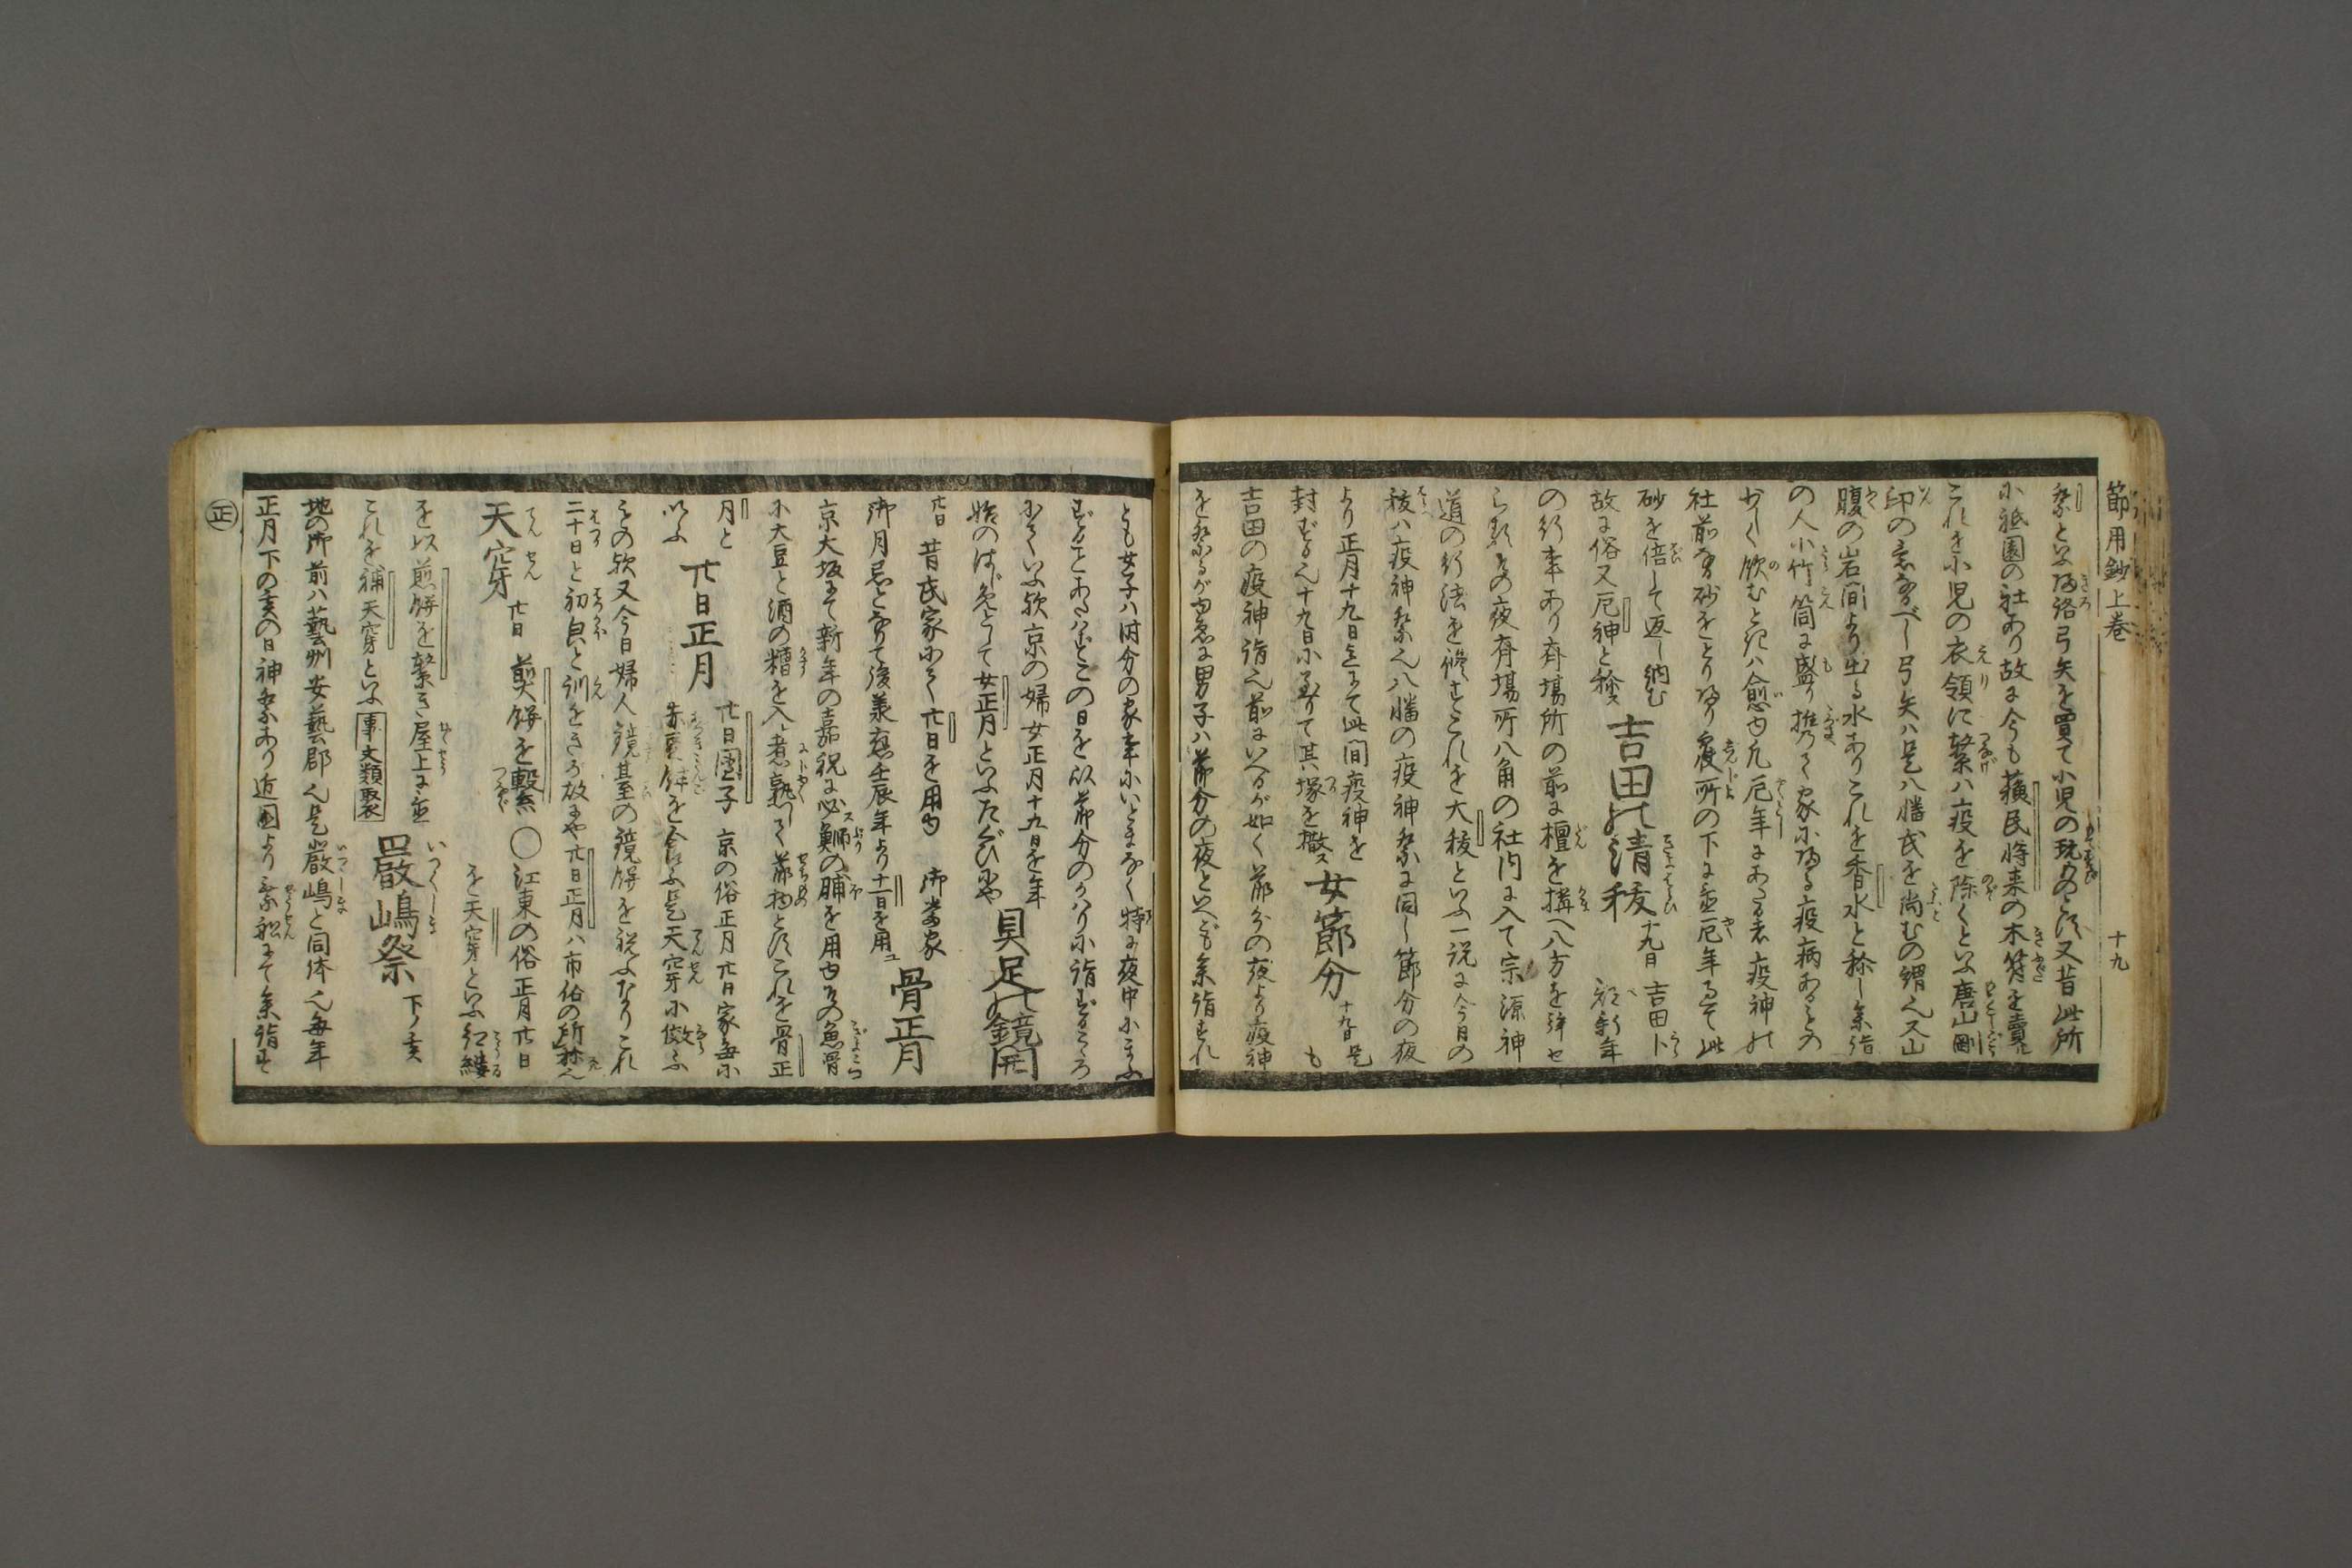 節用鈔上巻 十九
祭といふ帰路弓矢を買て小児の玩のとす又昔此所
に祗園の社あり故に今も蘓民将来の木符を賣
これを小児の衣領に繋ハ疫を除くといふ唐山剛
卯の意なるべし弓矢ハ是八幡武を尚むの謂也又山
腹の岩間より出る水ありこれを香水と称し参詣
の人小竹筒に盛り携て家に帰る疫病あるとの
かく飲むときハ愈也凡厄年にあたる者疫神の
社前の砂をとり帰り寝所の下に置厄年まで此
砂を倍して返し納む
故に俗又厄神と称ス
吉田の清秡 十九日 吉田ト
部新年
の行事あり斎場所の前に檀を搆へ八方を弾せ
らるその夜斎場所八角の社内に入て宗源神
道の行法を修すこれを大秡といふ一説に今日の
秡ハ疫神祭也八幡の疫神祭に同し節分の夜
より正月十九日まて此間疫神を
封ずる也十九日に至りて其塚を撤ス
女節分 十九日是も
吉田の疫神詣也前にいへるが如く節分の夜より疫神
を祭るが故に男子ハ節分の夜といへども参詣すれ
とも女子ハ時分の家事にいとまなく特に夜中にまふ
ずることあたハずこの日を以節分のかハりに詣するころ
にていふ欤京の婦女正月十九日を年
始のはじめとして女正月といふたぐひにや
具足の鏡開
廿日 昔武家にて廿日を用ゆ 御当家
御月忌となりて後義應壬辰年より十一日を用ユ
骨正月
京大坂まて新年の嘉祝に必ス鰤の脯を用ゆその魚骨
に大豆と酒の糟を入煮熟して節物とすこれを骨正
月と
いふ
廿日正月 廿日團子 京の俗正月廿日家毎に
赤豆餅を食ふ是天穿に倣ふ
その欤又今日婦人鏡基至の鏡餅を祝ふなりこれ
二十日と初㒵と訓をきろ故にや廿日正月ハ市俗の所称也
天穿 廿日 煎餅を繫 ○江東の俗正月廿日
を天穿といふ紅縷
を以煎餅を繫き屋上に置
これを補天穿といふ 事文類聚
嚴嶋祭 下ノ亥
地の御前ハ藝州安藝郡也是嚴嶋と同体也毎年
正月下の亥の日神祭あり近國より乗舩まて参詣す
正